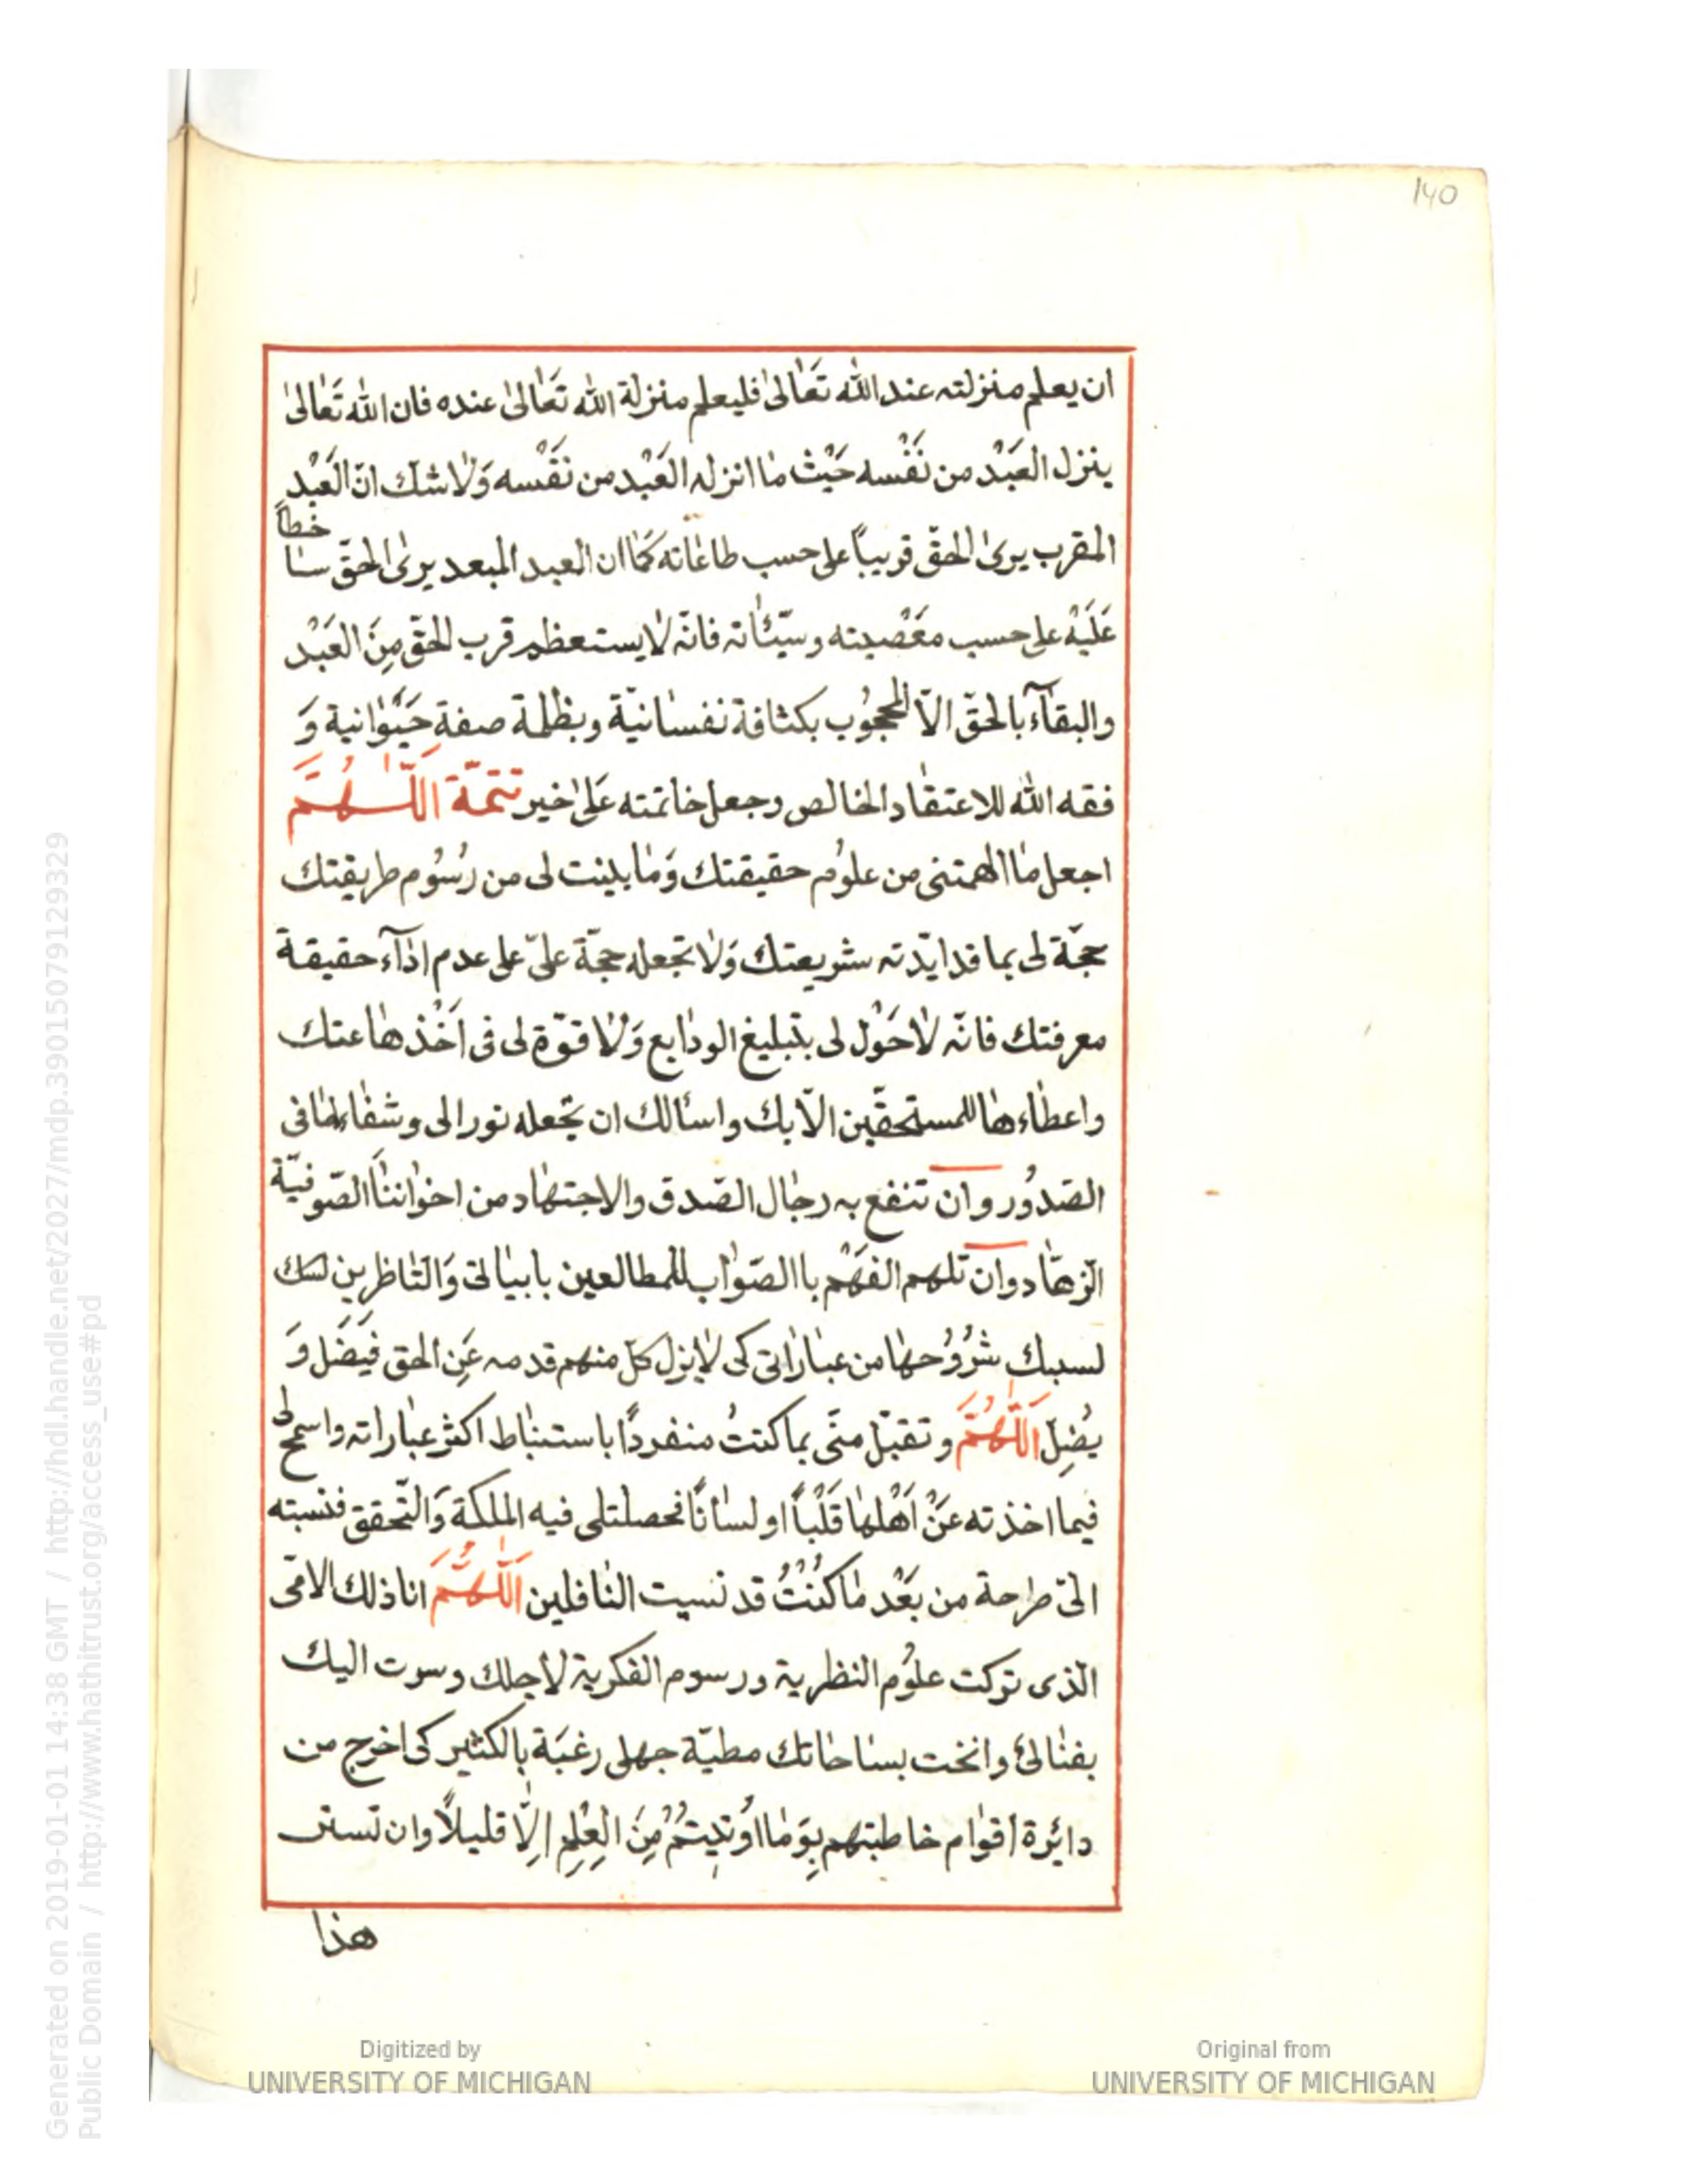 140
ان يعلم منزلته عند الله تَعَالىٰ فليعلم منزلة الله تَعَالىٰ عنده فان الله تَعَالىٰ
ينزل العَبْد من نَفْسه حَيْث مٰا انزله العَبْد من نَفْسه وَلٰا شك انّ العَبْد
المقرب يرىٰ الحقّ قريباً على حسب طاعٰاته كَمٰا ان العبد المبعد يرىٰ الحقّ سٰاخطاً
عَلَيْهْ على حسب معَصْيته وسيّئٰاته فانّه لٰا يستعظم قرب الحقّ مِنَ العَبْد
والبقآء بالحقّ الاّ المحجُوب بكثافة نفسٰانيّة وبظلمة صفة حَيَوٰانية وَ
فقه الله للاعتقٰاد الخالص وجعل خاتمته عَلىٰ خير تتمّة اَللّٰهُمَّ
اجعل مٰا الهمتنى من علوُم حقيقتك وَمٰا بينت لى من رُسُوم طريقتك
حجّة لى بما قد ايّدته شريعتك وَلٰا تجعله حجّة علىّ على عدم ادٰآء حقيقة
معرفتك فانّه لٰا حَوْل لى بتبليغ الودٰايع وَلٰا قوّة لى فى اَخْذهٰا عنك
واعطٰاءهٰا للمستحقّين الاّ بك واسئالك ان تجعله نورا لى وشفٰاء لمٰا فى
الصّدُور وان تنفع به رجٰال الصّدق والاجتهٰاد من اخوٰاننٰا الصّوفيّة
الزّهّاد وان تلهم الفَهْم باالصّوٰاب للمطالعين بابيٰاتى وَالنّاظرين
لسبك شرُوُحهٰا من عبٰارٰاتى كى لٰا يزل كلّ منهم قدمه عَنِ الحق فيَضَل وَ
يُضِلّ اَللّٰهُمَّ وتقبّل منّى بما كنتُ منفردًا باستنبٰاط اكثر عبٰاراته واسمح لى
فيما اخذته عَنْ اَهْلهٰا قَلْباً اولسٰانًا فحصلتلى فيه الملكة وَالتّحقق فنسبته
الىّ طرحة من بَعْد مٰا كُنْتُ قد نسيت النٰاقلين اَللّٰهُمَّ انا ذلك الامّى
الّذى تركت علوُم النظرية ورسوم الفكرية لاجلك وسرت اليك
بفنٰائ وانخت بسٰاحاتك مطيّة جهلى رغبَة بالكثير كى اخرج من
دائرة اقوٰام خاطبتهم بِوَمٰا اُوتيتُمْ مِنَ العِلْمِ اِلّٰا قليلاً وان تستر
هذا
Digitized by
UNIVERSITY OF MICHIGAN
Original from
UNIVERSITY OF MICHIGAN
Generated on 2019-01-01 14:38 GMT / http://hdl.handle.net/2027/mdp.39015079129329
Public Domain / http://www.hathitrust.org/access_use#pd